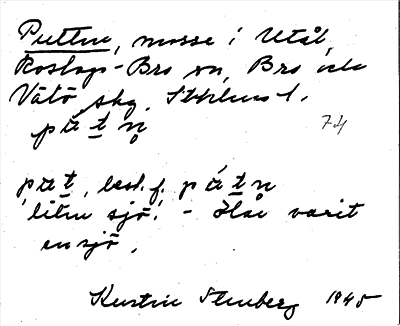 Puttne, mosse i Utål,
Roslags-Bro sn, Bro och
Vätö skg. Sthlms l.
pùt̲n̥
74
put̲, best. f. pùt̲n
'liten sjö'. - Har varit
en sjö.
Kerstin Stenberg 1945